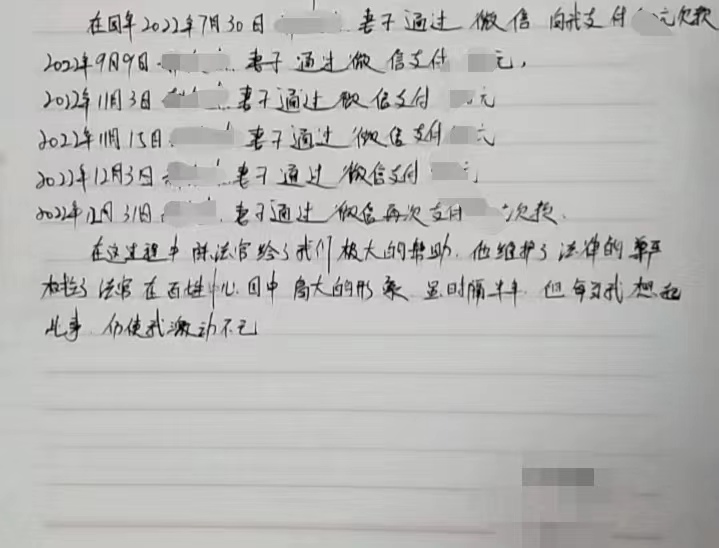 在同年2022年7月30日 妻子通过微信向我支付 元欠款
2022年9月9日 妻子通过微信支付 元,
2022年11月3日 妻子通过微信支付 元
2022年11月15日 妻子通过微信支付 元
2022年12月3日 妻子通过微信支付 元
2022年12月31日 妻子通过微信再次支付 欠款.
在这过程中陈法官给了我们极大的帮助.他维护了法律的尊严
树立了法官在百姓心目中高大的形象 虽时隔半年 但每当我想起
此事.仍使我激动不已